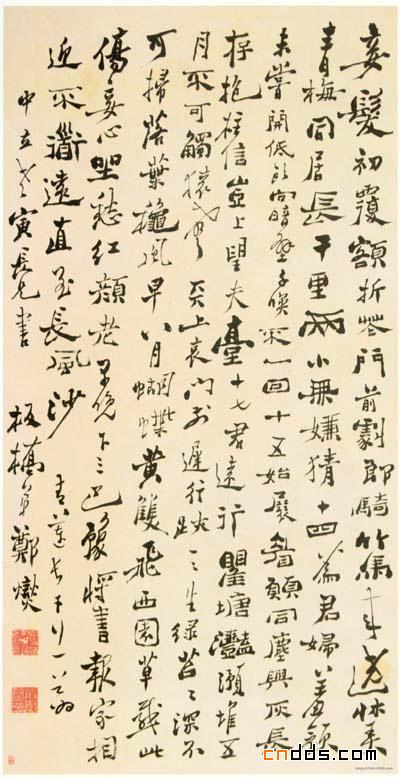 妾髮初覆額折花門前劇郎騎竹馬来遶牀弄
青梅同居長干里兩小無嫌猜十四為君婦羞顏
未嘗開低頭向暗壁千喚不一回十五始展眉願同塵與灰長
存抱柱信豈上望夫臺十七君遠行瞿塘灩澦堆五
月不可觸猿聲天上哀門前遲行跡一一生綠苔苔深不
可掃落葉秋風早八月蝴蝶黃雙飛西園草感此
傷妾心坐愁紅顏老早晚下三巴豫將書報家相
迎不道遠直至長風沙 青蓮長干行一首為
中立老寅長兄書 板橋弟鄭燮
cndds.com